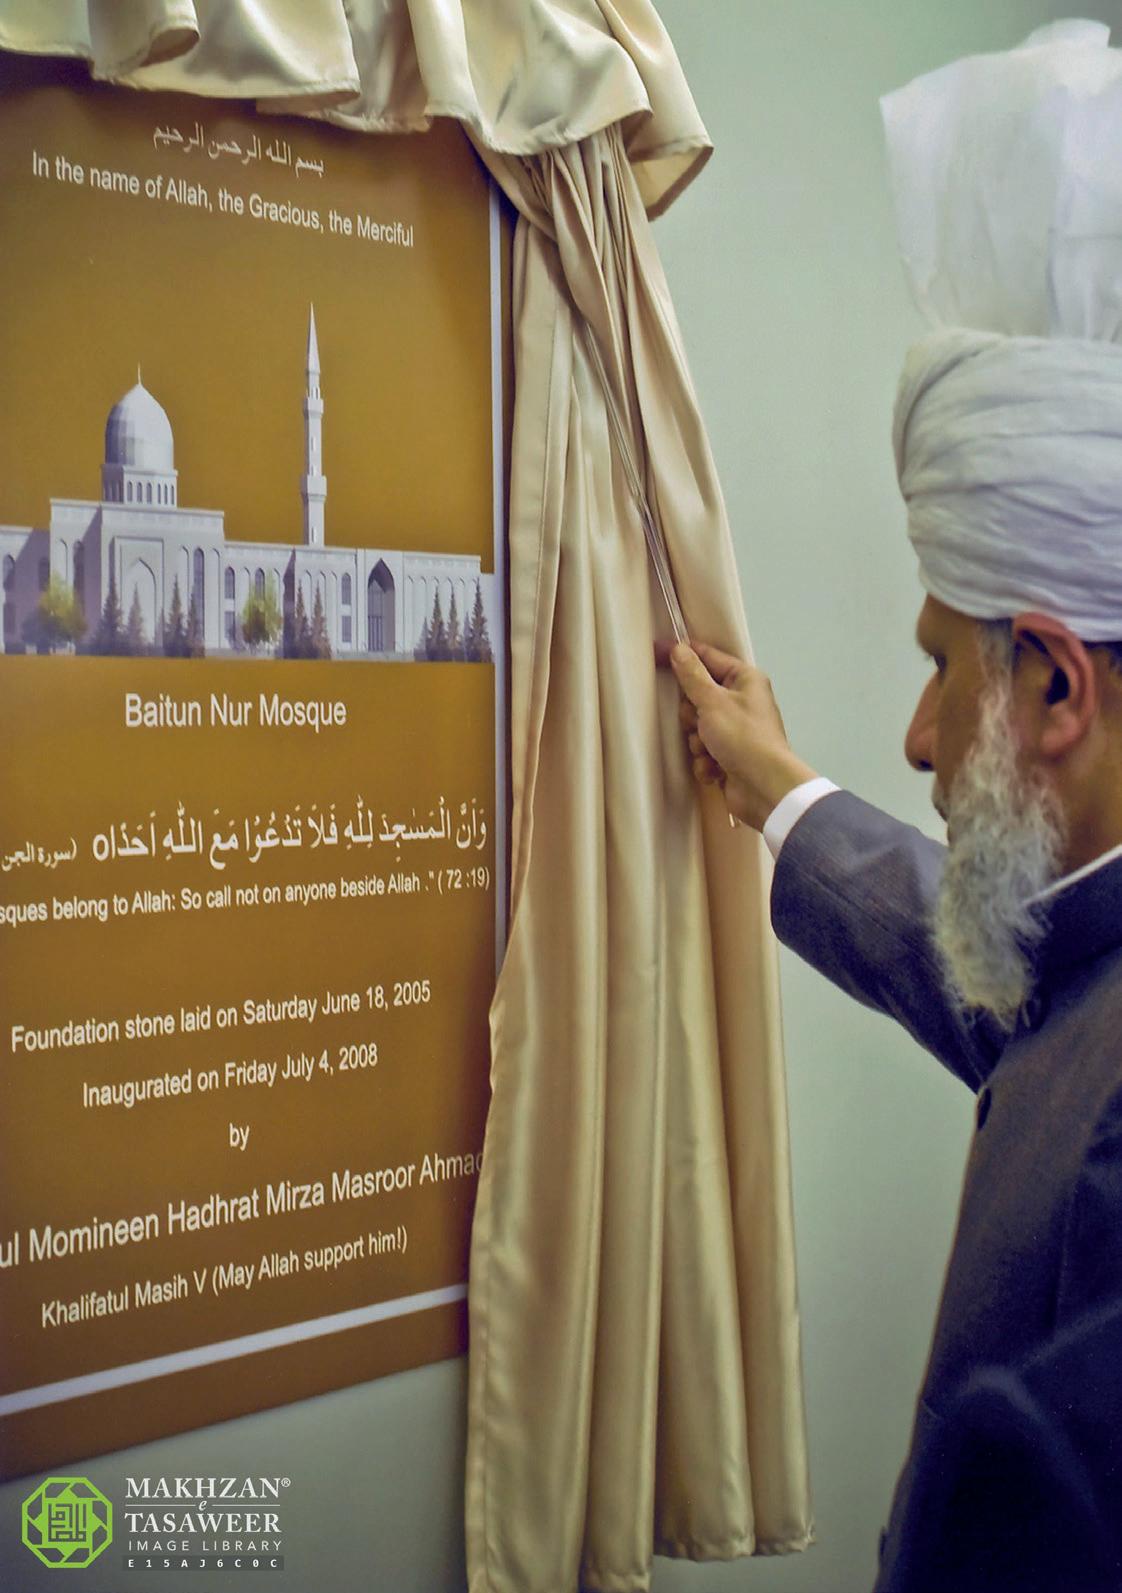 بسم الله الرحمن الرحيم
In the name of Allah, the Gracious, the Merciful
Baitun Nur Mosque
وَاَنَّ الْمَسٰجِدَ لِلّٰهِ فَلَا تَدْعُوْا مَعَ اللّٰهِ اَحَدًاo (سورة الجن
sques belong to Allah: So call not on anyone beside Allah ." ( 72 :19)
Foundation stone laid on Saturday June 18, 2005
Inaugurated on Friday July 4, 2008
by
ul Momineen Hadhrat Mirza Masroor Ahmad
Khalifatul Masih V (May Allah support him!)
MAKHZAN®
e
TASAWEER
IMAGE LIBRARY
E15AJ6C0C